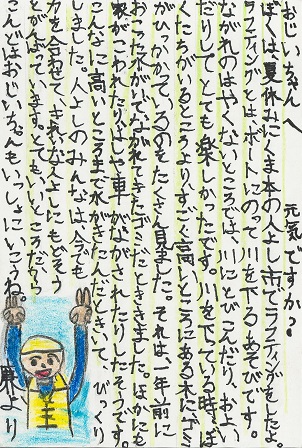 おじいちゃんへ　元気ですか？
ぼくは夏休みにくま本の人よし市でラフティングをしたよ。
ラフティングとは、ボートにのって川を下るあそびです。
ながれのはやくないところでは、川にとびこんだり、およい
だりしてとても楽しかったです。川を下っている時、ぼ
くたちがいるところより、すごく高いところにある木にゴミ
がひっかかっているのをたくさん見ました。それは、一年前に
おこった水がいでながれてきたゴミだとききました。ほかにも
家がこわれたりはしや車がながされたりしたそうです。
こんなに高いところまで水がきたんだときいて、びっくり
しました。人よしのみんなは、今でも
力を合わせて、きれいな人よしにもどそう
とがんばっています。とてもいいところだから
こんどはおじいちゃんもいっしょにいこうね。
より